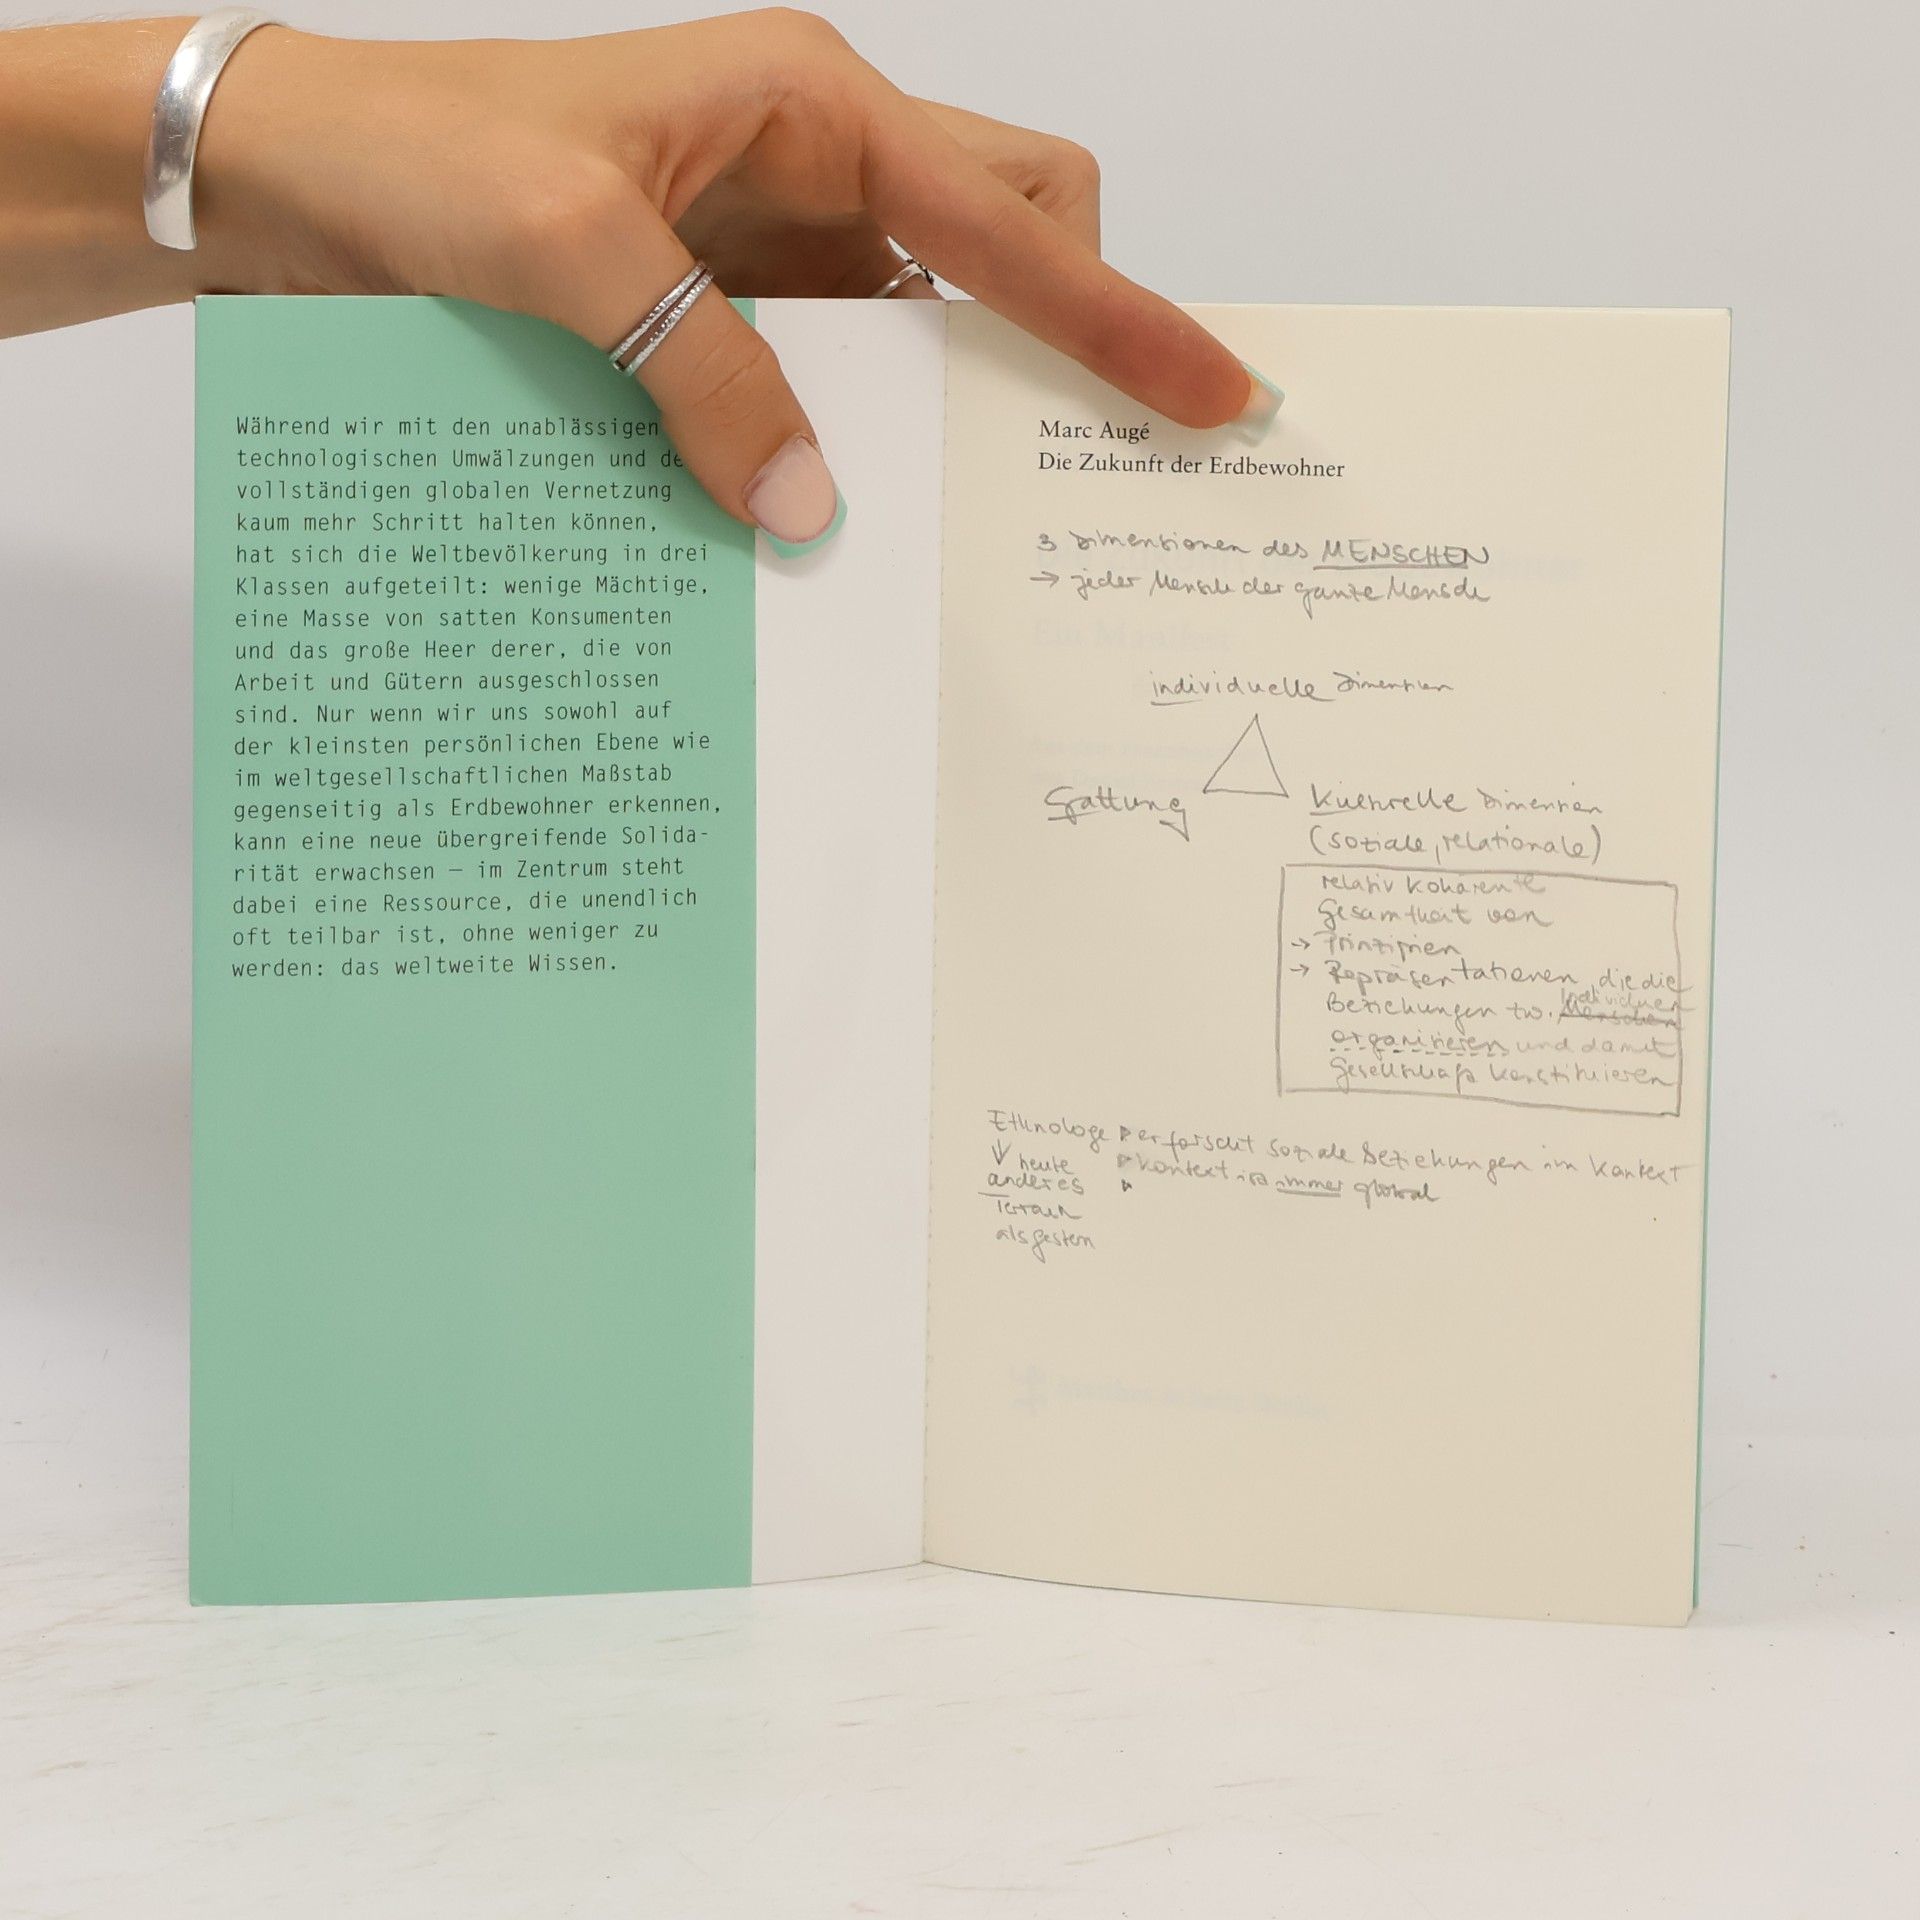 Während wir mit den unablässigen
technologischen Umwälzungen und de
vollständigen globalen Vernetzung
kaum mehr Schritt halten können,
hat sich die Weltbevölkerung in drei
Klassen aufgeteilt: wenige Mächtige,
eine Masse von satten Konsumenten
und das große Heer derer, die von
Arbeit und Gütern ausgeschlossen
sind. Nur wenn wir uns sowohl auf
der kleinsten persönlichen Ebene wie
im weltgesellschaftlichen Maßstab
gegenseitig als Erdbewohner erkennen,
kann eine neue übergreifende Solida-
rität erwachsen – im Zentrum steht
dabei eine Ressource, die unendlich
oft teilbar ist, ohne weniger zu
werden: das weltweite Wissen.
Marc Augé
Die Zukunft der Erdbewohner
3 Dimensionen des MENSCHEN
→ jeder Mensch der ganze Mensch
individuelle Dimension
Gattung
Kulturelle Dimension
(soziale, relationale)
relativ kohärente
Gesamtheit von
→ Prinzipien
→ Repräsentationen, die die
Individuen
Beziehungen zw. Menschen
organisieren und damit
Gesellschaft konstituieren
Ethnologe ▸ erforscht soziale Beziehungen im Kontext
↓ heute ▸ Kontext ist immer global
anderes ▸
Terrain
als gestern